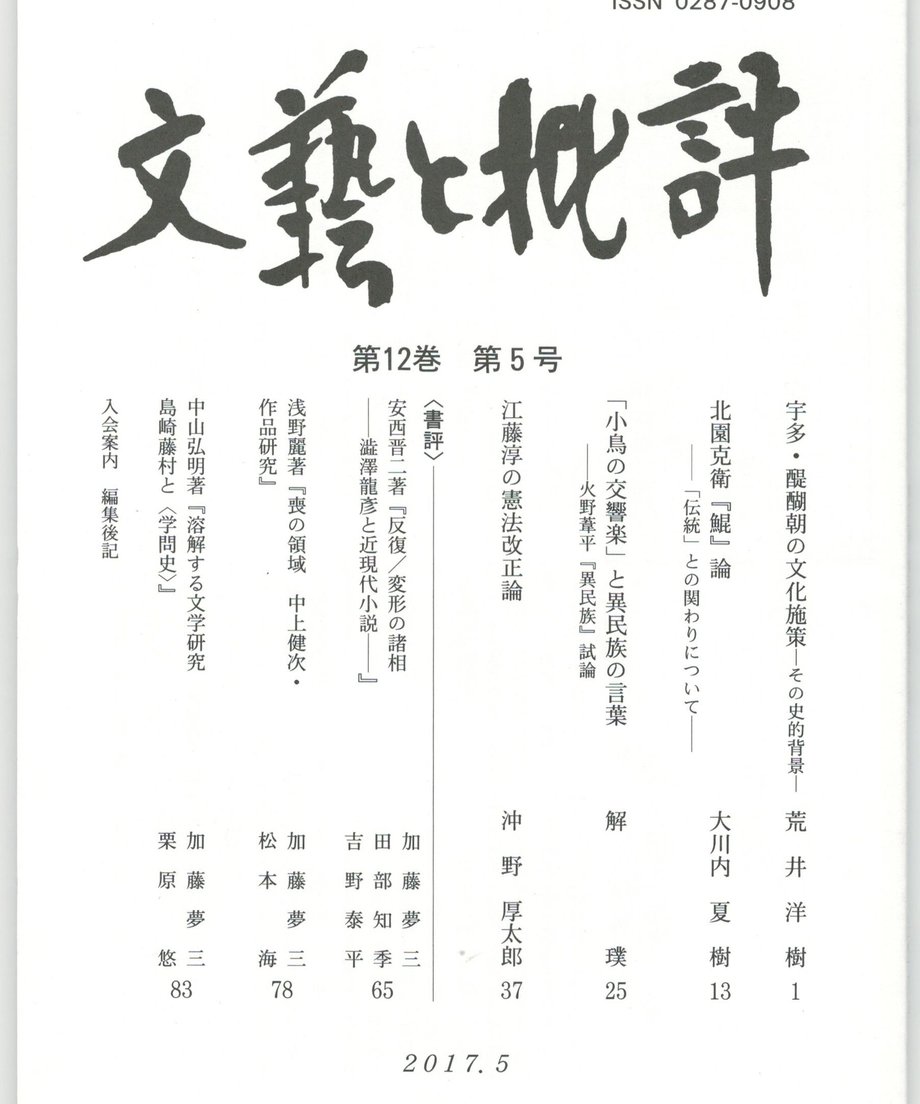 ISSN 0287-0908
文藝と批評
第12巻 第5号
宇多・醍醐朝の文化施策―その史的背景― 荒井洋樹 1
北園克衛『鯤』論
――「伝統」との関わりについて―― 大川内夏樹 13
「小鳥の交響楽」と異民族の言葉
――火野葦平『異民族』試論 解璞 25
江藤淳の憲法改正論 沖野厚太郎 37
〈書評〉
安西晋二著『反復/変形の諸相
――澁澤龍彦と近現代小説――』
加藤夢三
田部知季
吉野泰平
65
浅野麗著『喪の領域 中上健次・
作品研究』
加藤夢三
松本海
78
中山弘明著『溶解する文学研究
島崎藤村と〈学問史〉』
加藤夢三
栗原悠
83
入会案内 編集後記
2017.5